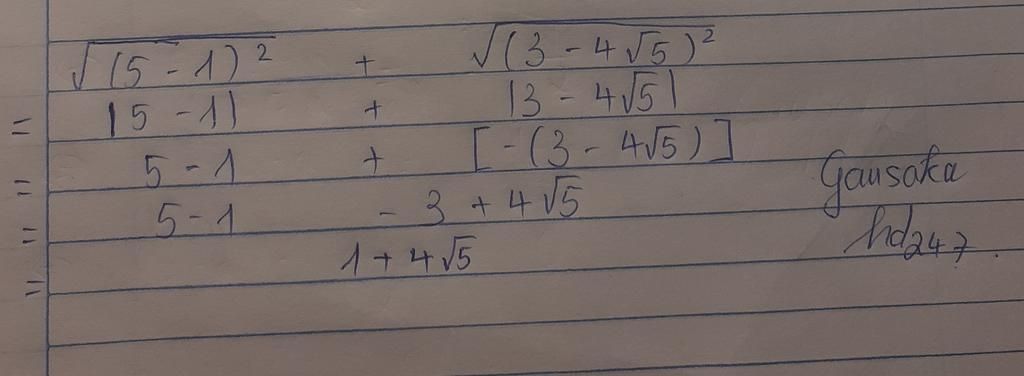 √(5 - 1)² + √(3 - 4√5)²
= |5 - 1| + |3 - 4√5|
= 5 - 1 + [-(3 - 4√5)]
= 5 - 1 - 3 + 4√5
= 1 + 4√5
Gausaka
hd247.